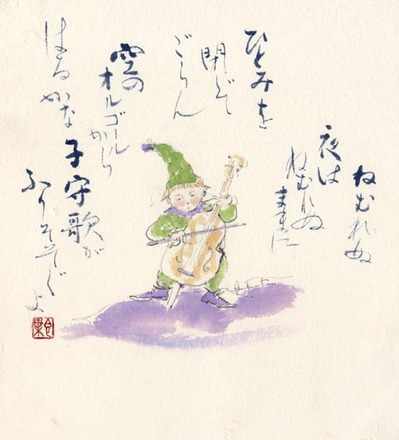 ねむれぬ
夜は
ねむれぬ
ままに
ひとみを
閉じて
ごらん
空の
オルゴール
から
はるかな子守歌が
ふりそそぐよ